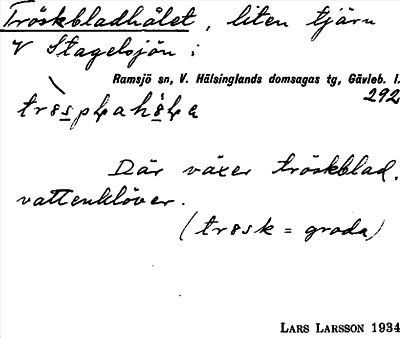 Tröskbladhålet, liten tjärn
V Stagelsjön:
Ramsjö sn, V. Hälsinglands domsagas tg, Gävleb. l.
292
Där växer tröskblad,
vattenklöver.
(trøsk = groda)
LARS LARSSON 1934